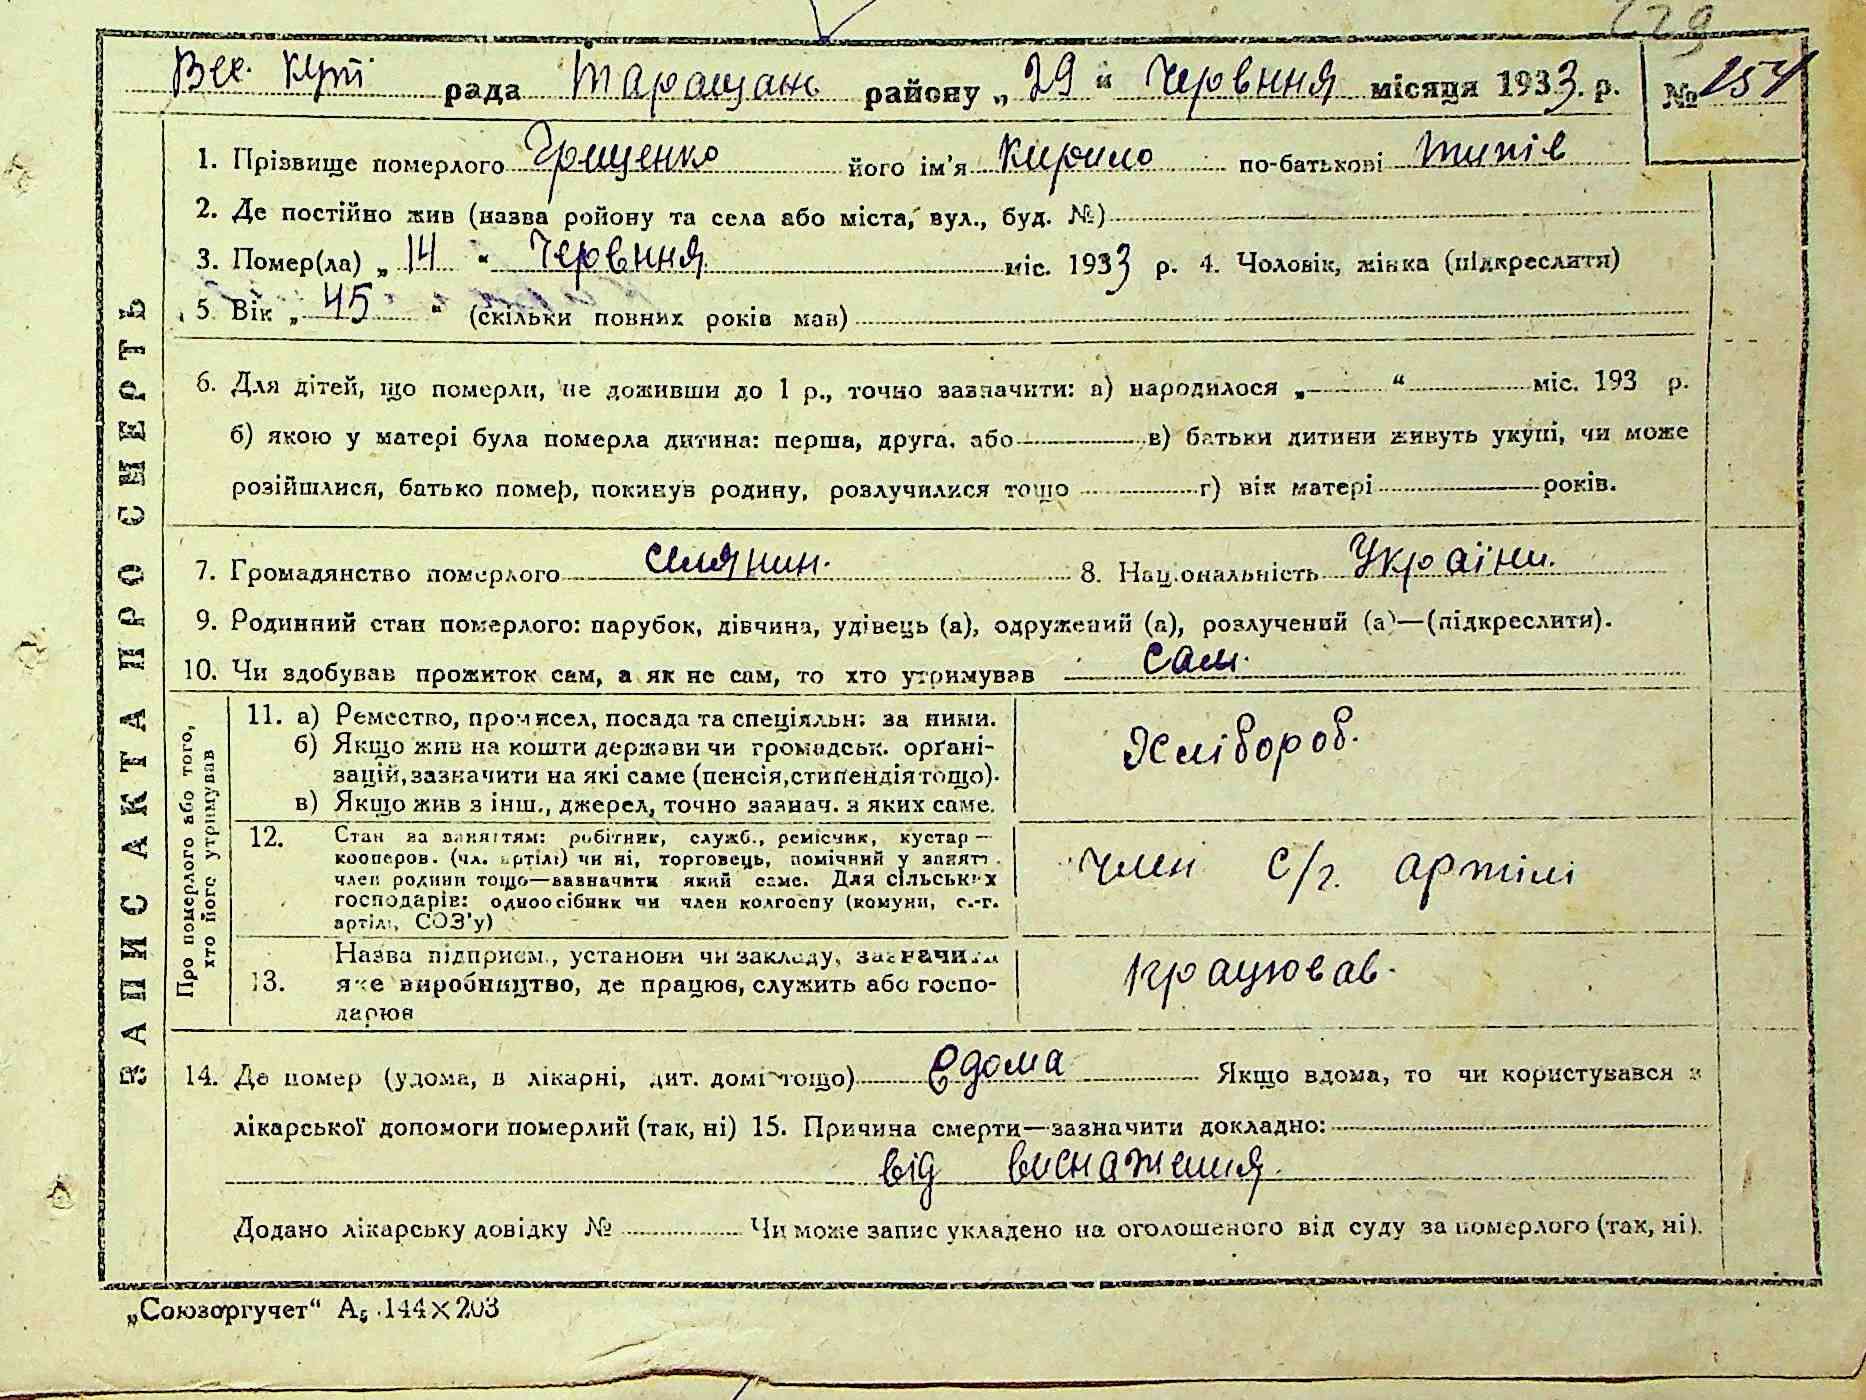 229
Вел. Кут рада Таращан району „29“ Червння місяця 1933. р. № 254
1. Прізвище померлого Грищенко його ім’я Кирило по-батькові Типів
2. Де постійно жив (назва ройону та села або міста, вул., буд. №)
3. Помер(ла) „14“ Червння міс. 1933 р. 4. Чоловік, жінка (підкреслити)
5. Вік „45“ (скільки повних років мав)
6. Для дітей, що померли, не доживши до 1 р., точно зазначити: а) народилося „ “ міс. 193 р.
б) якою у матері була померла дитина: перша, друга, або в) батьки дитини живуть укупі, чи може
розійшлися, батько помер, покинув родину, розлучилися тощо г) вік матері років.
7. Громадянство померлого селянин. 8. Національність України.
9. Родинний стан померлого: парубок, дівчина, удівець (а), одружений (а), розлучений (а)—(підкреслити).
10. Чи здобував прожиток сам, а як не сам, то хто утримував сам.
ЗАПИС АКТА ПРО СМЕРТЬ
Про померлого або того,
хто його утримував
11. а) Ремество, промисел, посада та спеціяльн. за ними.
б) Якщо жив на кошти держави чи громадськ. органі-
зацій, зазначити на які саме (пенсія, стипендія тощо).
в) Якщо жив з інш., джерел, точно зазнач. з яких саме.
Хлібороб.
12. Стан за заняттям: робітник, служб., ремісник, кустар —
кооперов. (чл. артілі) чи ні, торговець, помічний у занятт.
член родини тощо—зазначити який саме. Для сільських
господарів: одноосібник чи член колгоспу (комуни, с.-г.
артілі, СОЗ’у)
член с/г. артілі
13. Назва підприєм., установи чи закладу, зазначити
яке виробництво, де працює, служить або госпо-
дарює
працював.
14. Де помер (удома, в лікарні, дит. домі тощо) вдома Якщо вдома, то чи користувався з
лікарської допомоги померлий (так, ні) 15. Причина смерти—зазначити докладно:
від виснаження.
Додано лікарську довідку № Чи може запис укладено на оголошеного від суду за померлого (так, ні).
„Союзоргучет“ А5 .144×203